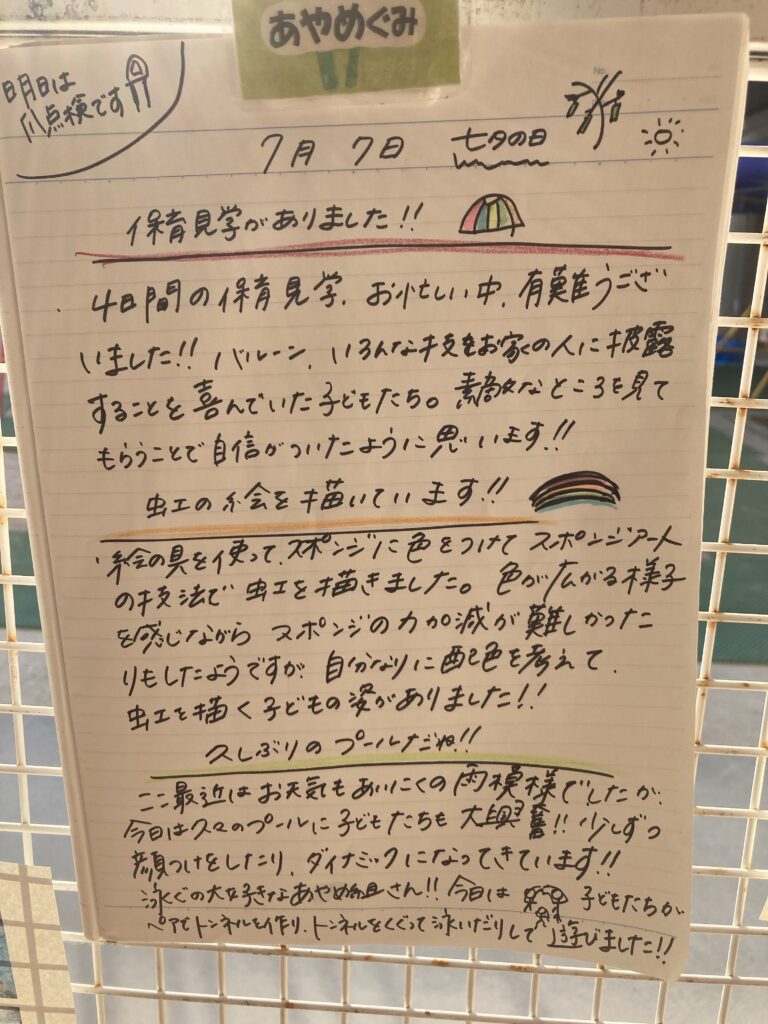 あやめぐみ
明日は
爪点検です
7月 7日 七夕の日
保育見学がありました!!
4日間の保育見学、お忙しい中、有難うござ
いました!! バルーン、いろんな技をお家の人に披露
することを喜んでいた子どもたち。素敵なところを見て
もらうことで自信がついたように思います!!
虹の絵を描いています!!
絵の具を使って、スポンジに色をつけてスポンジアート
の技法で虹を描きました。色が広がる様子
を感じながら スポンジの力加減が難しかった
りもしたようですが、自分なりに配色を考えて、
虹を描く子どもの姿がありました!!
久しぶりのプールだね!!
ここ最近はお天気もあいにくの雨模様でしたが、
今日は久々のプールに子どもたちも大興奮!! 少しずつ
顔つけをしたり、ダイナミックになってきています!!
泳ぐの大好きなあやめ組さん!! 今日は 子どもたちが
ペアでトンネルを作り、トンネルをくぐって泳いだりして遊びました!!